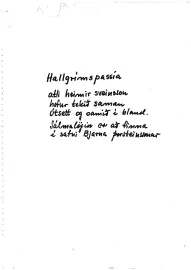 Hallgrímspassía
atli heimir sveinsson
hefur tekið saman
Útsett og samið í bland.
Sálmalögin er að finna
í safni Bjarna þorsteinssonar